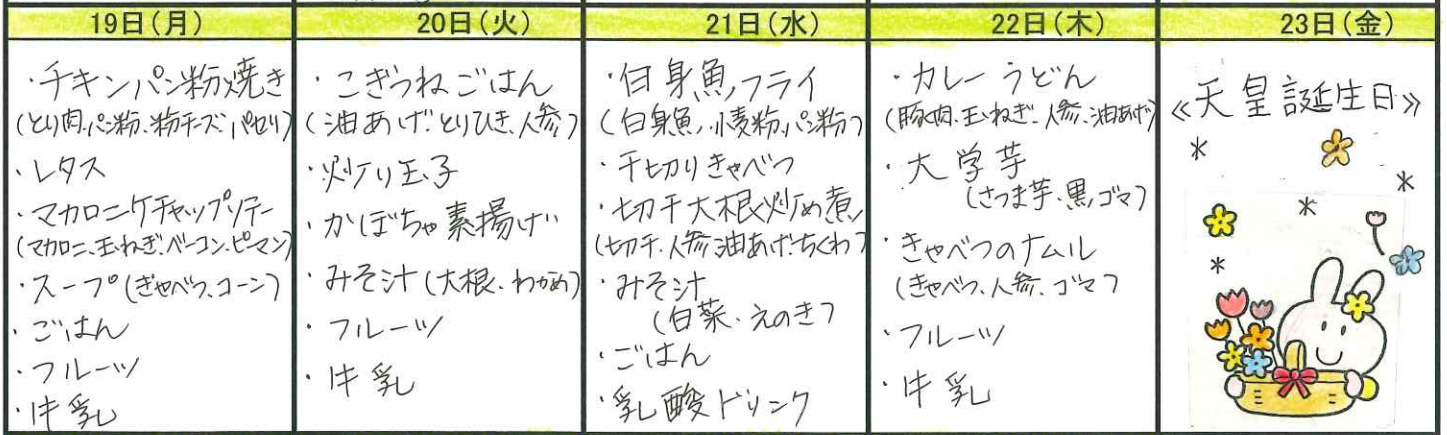 19日(月)
・チキンパン粉焼き
(とり肉、パン粉、粉チーズ、パセリ)
・レタス
・マカロニケチャップソテー
(マカロニ、玉ねぎ、ベーコン、ピーマン)
・スープ(きゃべつ、コーン)
・ごはん
・フルーツ
・牛乳
20日(火)
・こぎつねごはん
(油あげ、とりひき、人参)
・炒り玉子
・かぼちゃ素揚げ
・みそ汁(大根・わかめ)
・フルーツ
・牛乳
21日(水)
・白身魚フライ
(白身魚、小麦粉、パン粉)
・千切りきゃべつ
・切干大根炒め煮
(切干、人参、油あげ、ちくわ)
・みそ汁
(白菜・えのき)
・ごはん
・乳酸ドリンク
22日(木)
・カレーうどん
(豚肉、玉ねぎ、人参、油あげ)
・大学芋
(さつま芋・黒ゴマ)
・きゃべつのナムル
(きゃべつ、人参、ゴマ)
・フルーツ
・牛乳
23日(金)
≪天皇誕生日≫